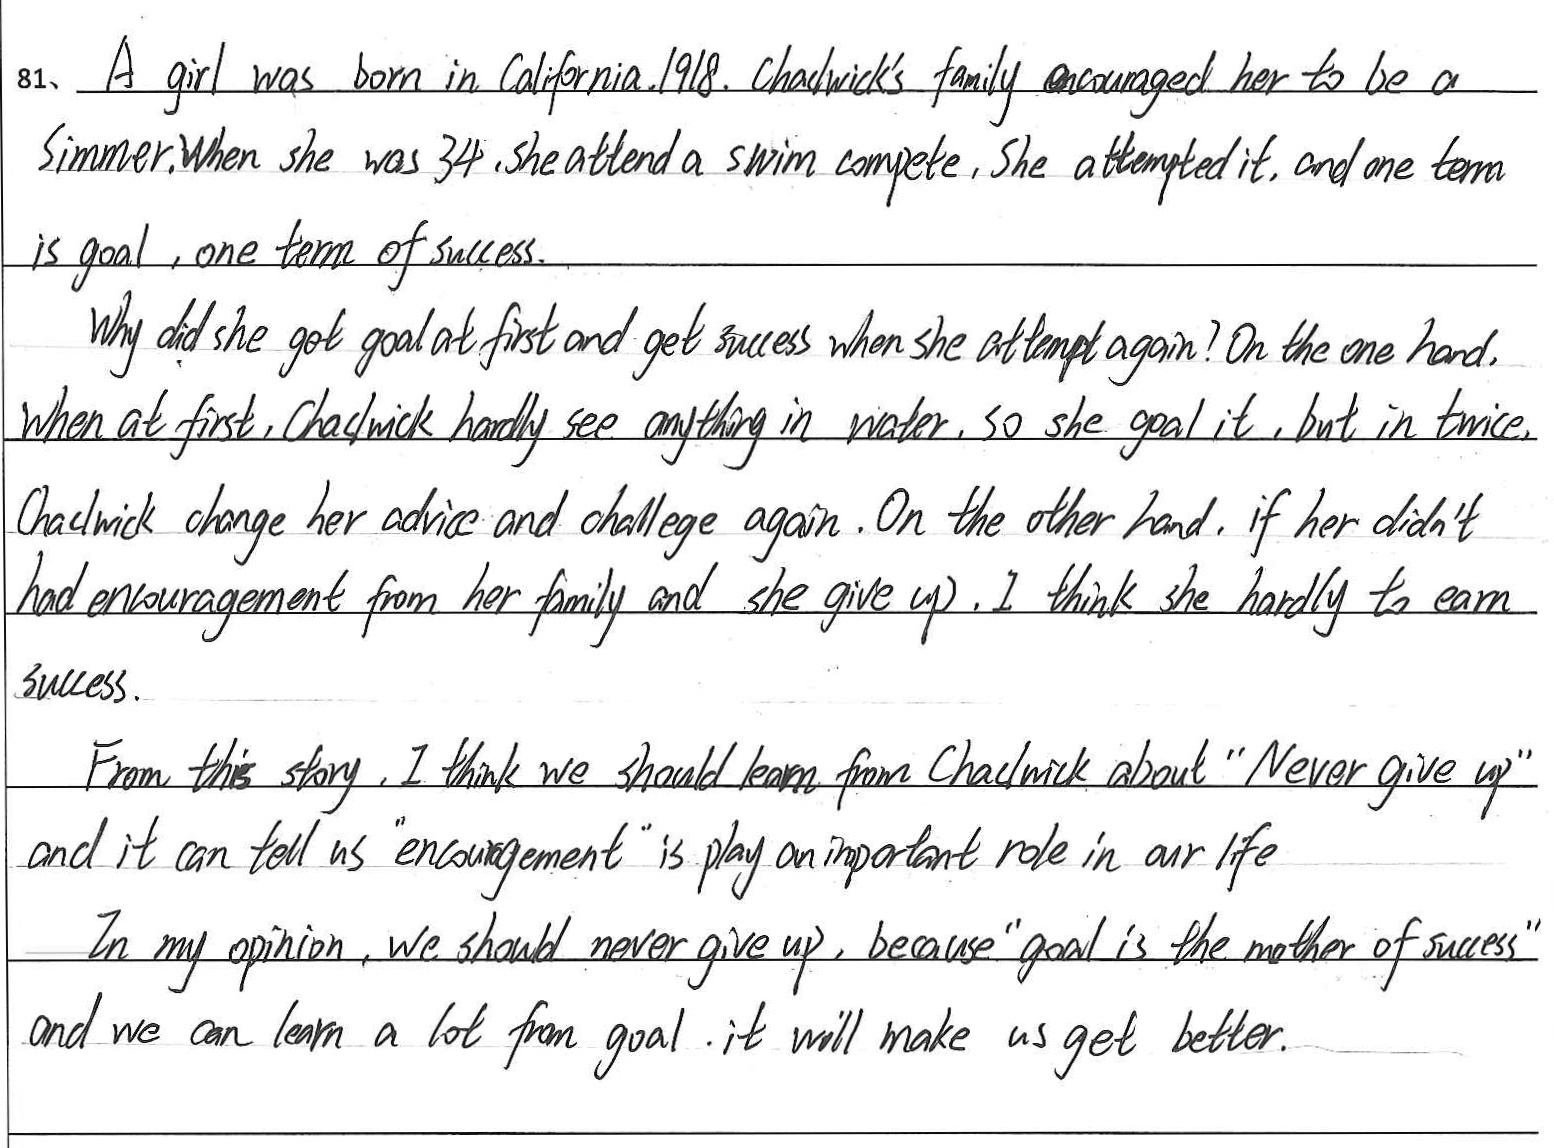 81、 A girl was born in California.1918. Chadwick's family encouraged her to be a
Simmer.When she was 34, she attend a swim compete, She attempted it, and one term
is goal, one term of success.
Why did she got goal at first and get success when she attempt again? On the one hand,
When at first, Chadwick hardly see anything in water, so she goal it, but in twice,
Chadwick change her advice and challege again. On the other hand, if her didn't
had encouragement from her family and she give up, I think she hardly to earn
success.
From this story, I think we should learn from Chadwick about "Never give up"
and it can tell us "encouragement" is play an important role in our life
In my opinion, we should never give up, because "goal is the mother of success"
and we can learn a lot from goal. it will make us get better.